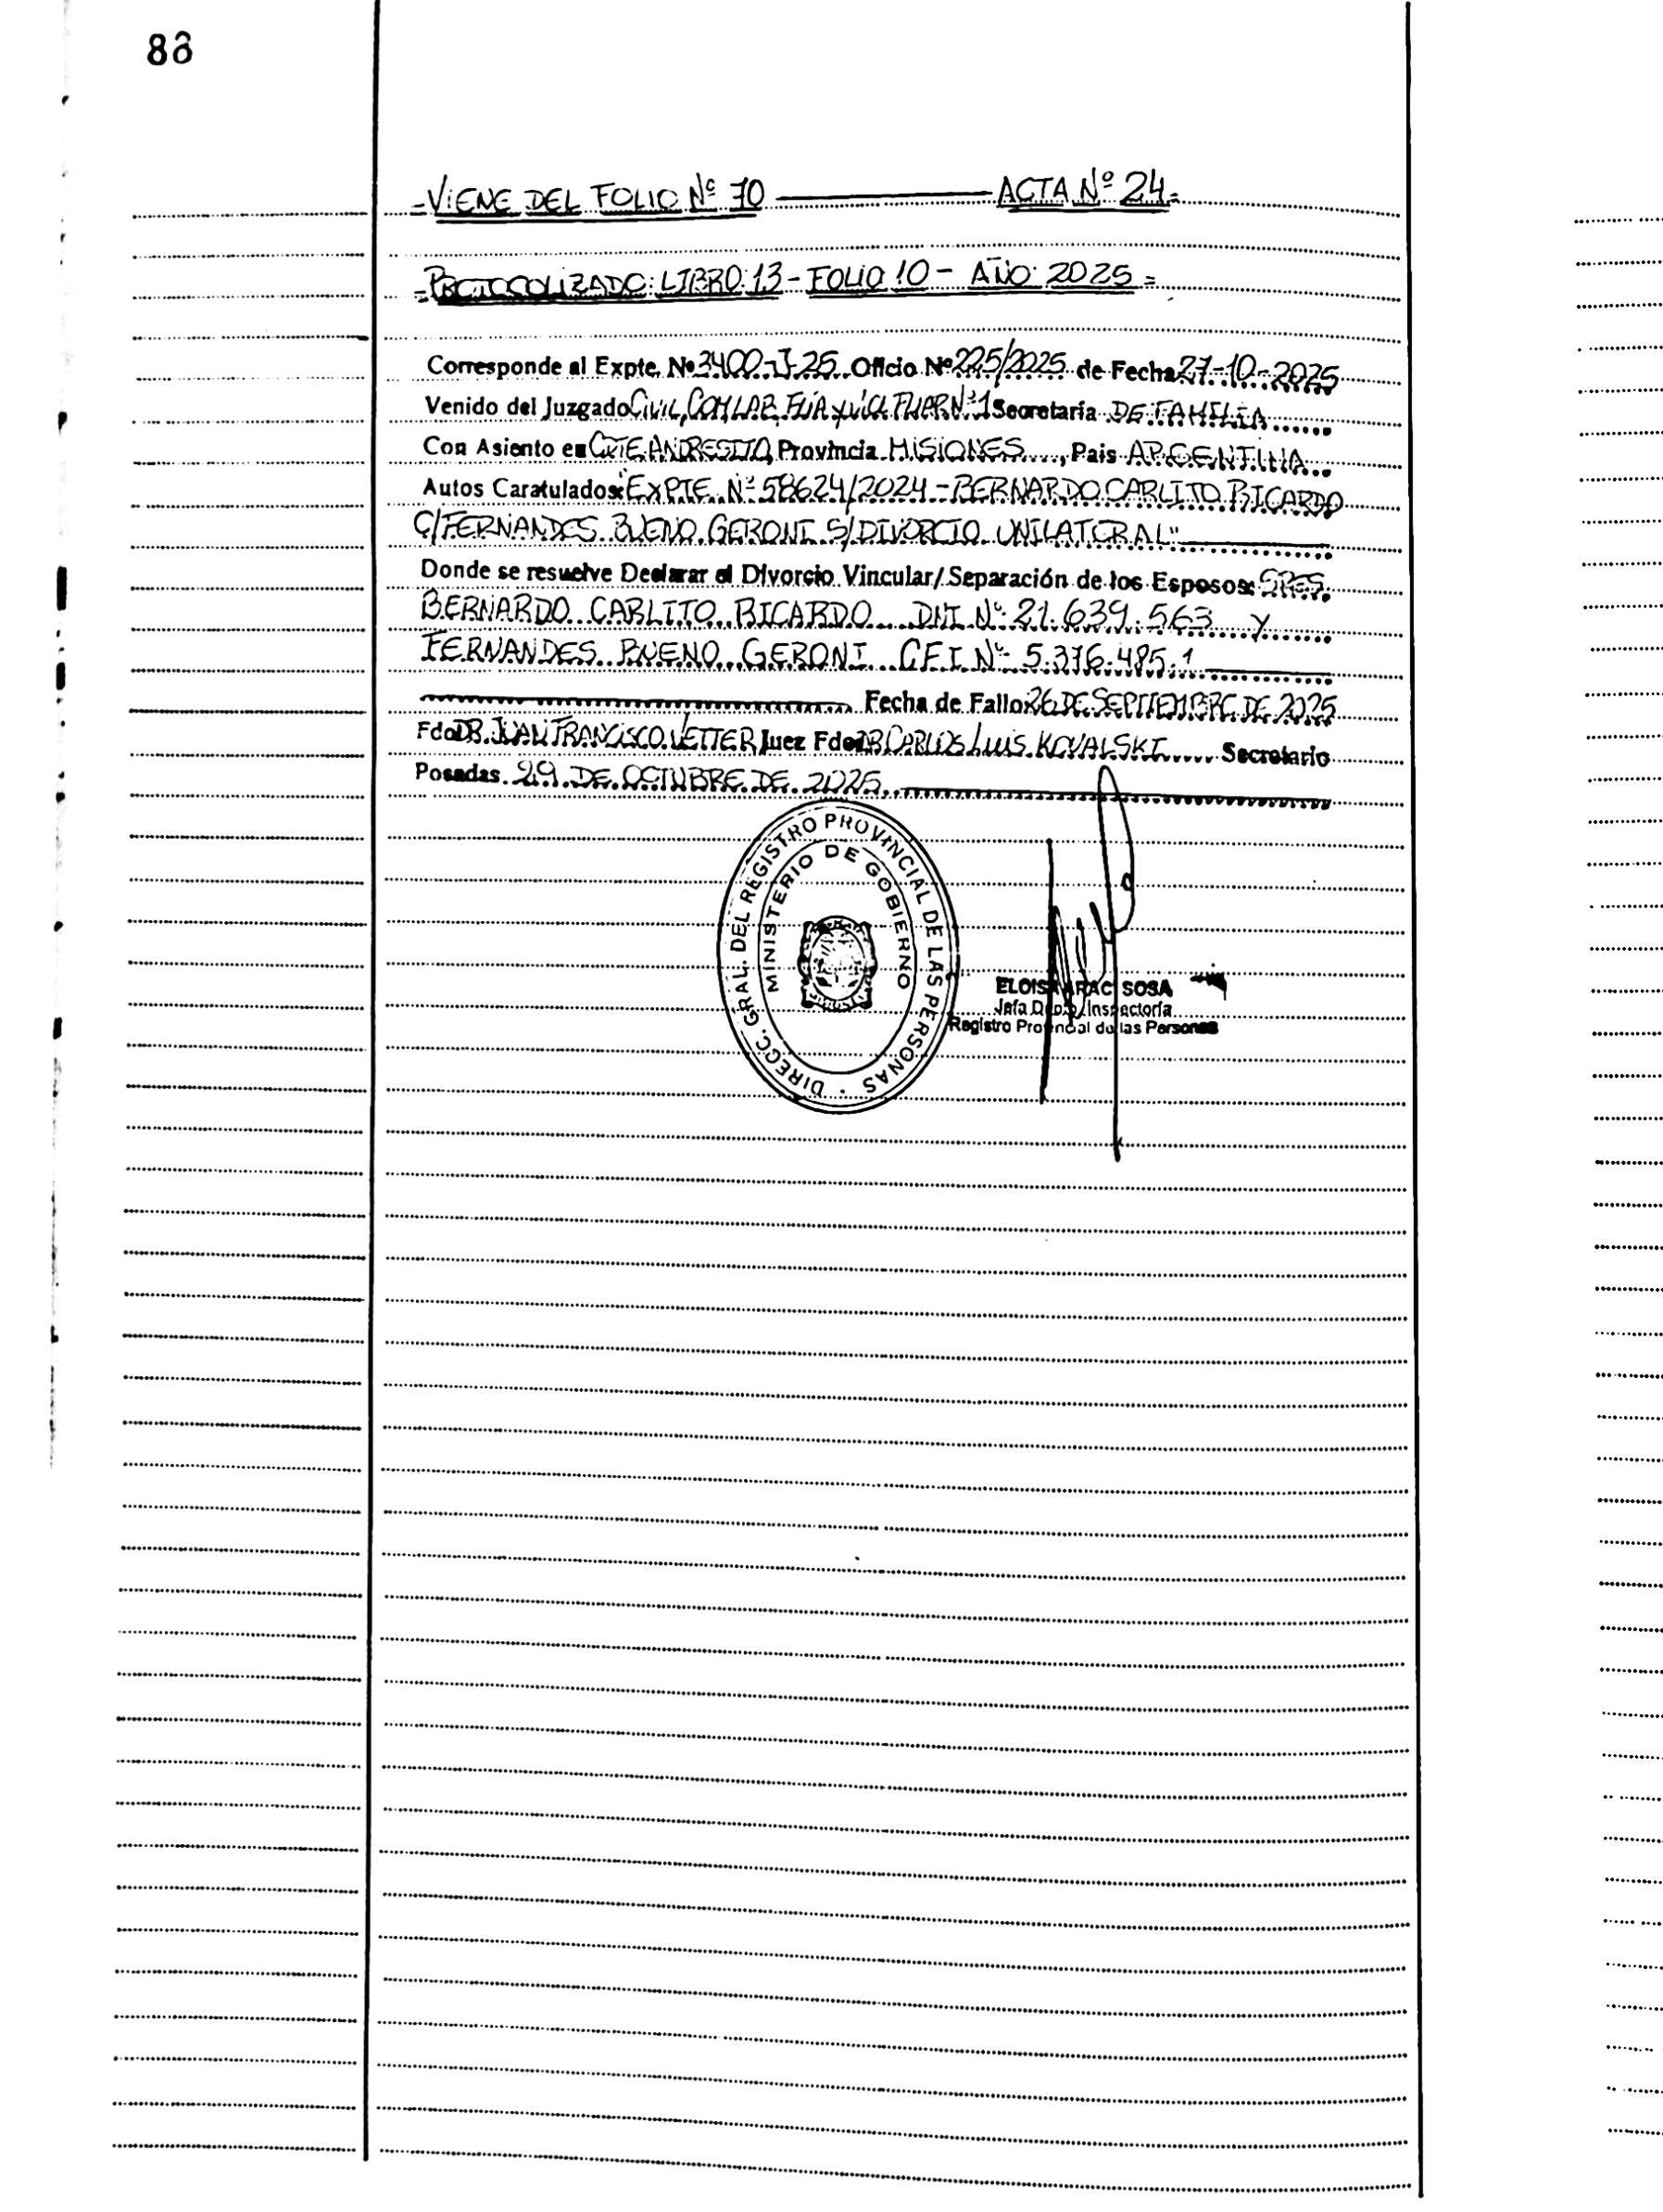 88
-VIENE DEL FOLIO Nº 70 ——— ACTA Nº 24=
-PROTOCOLIZADO: LIBRO 13 - FOLIO 10 - AÑO 2025=
Corresponde al Expte. Nº 3400-J-25 Oficio Nº 225/2025 de Fecha 27-10-2025
Venido del Juzgado CIVIL, COM, LAB, FLIA y VIOL. FLIAR Nº 1 Secretaría DE FAMILIA
Con Asiento en CTE ANDRESITO, Provincia MISIONES, Pais ARGENTINA
Autos Caratulados: "EXPTE. Nº 58624/2024 - BERNARDO CARLITO RICARDO
C/FERNANDES BUENO GERONI S/DIVORCIO UNILATERAL"
Donde se resuelve Declarar el Divorcio Vincular/Separación de los Esposos: SRES.
BERNARDO CARLITO RICARDO DNI Nº 21.639.563 y
FERNANDES BUENO GERONI C.F.I. Nº 5.376.485.1
Fecha de Fallo: 26 DE SEPTIEMBRE DE 2025
Fdo: DR. JUAN FRANCISCO VETTER Juez Fdo: DR CARLOS LUIS KOVALSKI Secretario
Posadas. 29 DE OCTUBRE DE 2025.
DIRECC. GRAL. DEL REGISTRO PROVINCIAL DE LAS PERSONAS
MINISTERIO DE GOBIERNO
ELOISA ARACI SOSA
Jefa Dpto. Inspectoría
Registro Provincial de las Personas